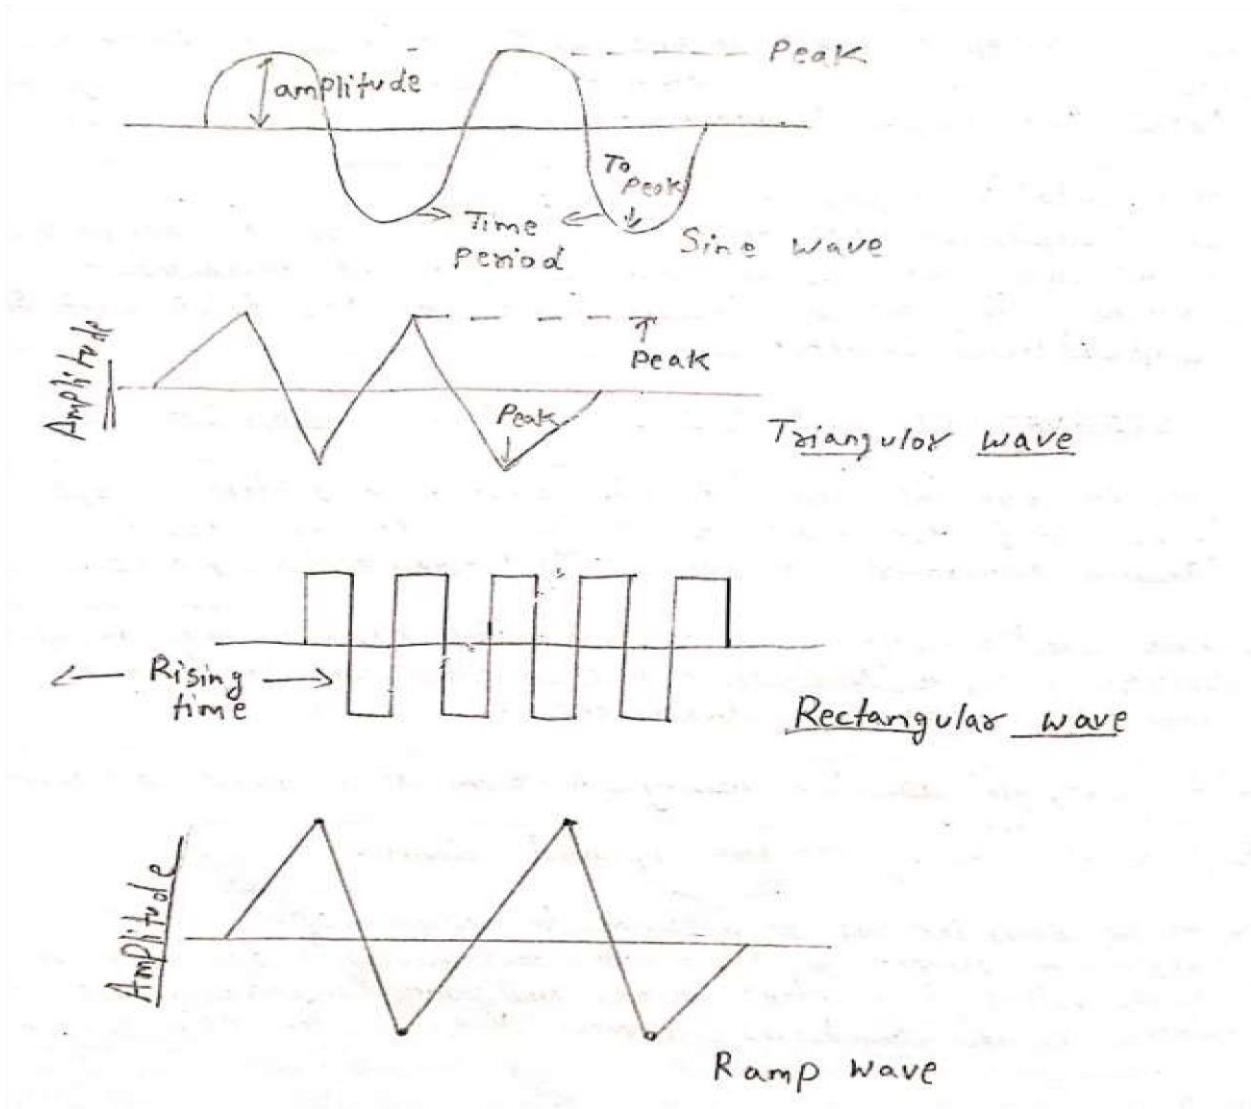 Peak
amplitude
To
Peak
Time
period
Sine wave
Amplitude
Peak
Peak
Triangular wave
Rising
time
Rectangular wave
Amplitude
Ramp wave